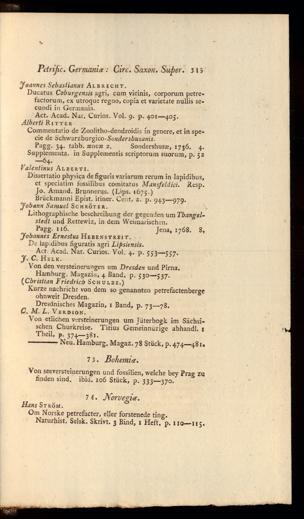 Petrific. Germaniæ: Circ. Saxon. Super. 313
Joannes Sebastianus ALBRECHT.
Ducatus Coburgensis agri, cum vicinis, corporum petre-
factorum, ex utroque regno, copia et varietate nullis se-
cundi in Germania.
Act. Acad. Nat. Curios. Vol. 9. p. 401—405.
Alberti RITTER
Commentatio de Zoolitho-dendroidis in genere, et in spe-
cie de Schwarzburgico-Sondershusanis.
Pagg. 34. tabb. æneæ 2. Sondershusæ, 1736. 4.
Supplementa. in Supplementis scriptorum suorum, p. 52
—64.
Valentinus ALBERTI.
Dissertatio physica de figuris variarum rerum in lapidibus,
et speciatim fossilibus comitatus Mansfeldici. Resp.
Jo. Arnand. Brunnerus. (Lips. 1675.)
Brückmanni Epist. itiner. Cent. 2. p. 943—979.
Johann Samuel SCHRÖTER.
Lithographische beschreibung der gegenden um Thangel-
stedt und Rettewitz, in dem Weimarischen.
Pagg. 116. Jena, 1768. 8.
Johannes Ernestus HEBENSTREIT.
De lapidibus figuratis agri Lipsiensis.
Act. Acad. Nat. Curios. Vol. 4. p. 553—557.
J. C. HELK.
Von den versteinerungen um Dresden und Pirna.
Hamburg. Magazin, 4 Band, p. 530—537.
(Christian Friedrich SCHULZE.)
Kurze nachricht von dem so genannten petrefactenberge
ohnweit Dresden.
Dresdnisches Magazin, 1 Band, p. 73—78.
C. M. L. VERDION.
Von etlichen versteinerungen um Jüterbogk im Sächsi-
schen Churkreise. Titius Gemeinnuzige abhandl. 1
Theil, p. 374—381.
——— Neu. Hamburg. Magaz. 78 Stück, p. 474—481.
73. Bohemiæ.
Von seeversteinerungen und fossilien, welche bey Prag zu
finden sind. ibid. 106 Stück, p. 333—370.
74. Norvegiæ.
Hans STRÖM.
Om Norske petrefacter, eller forstenede ting.
Naturhist. Selsk. Skrivt. 3 Bind, 1 Heft, p. 110—115.